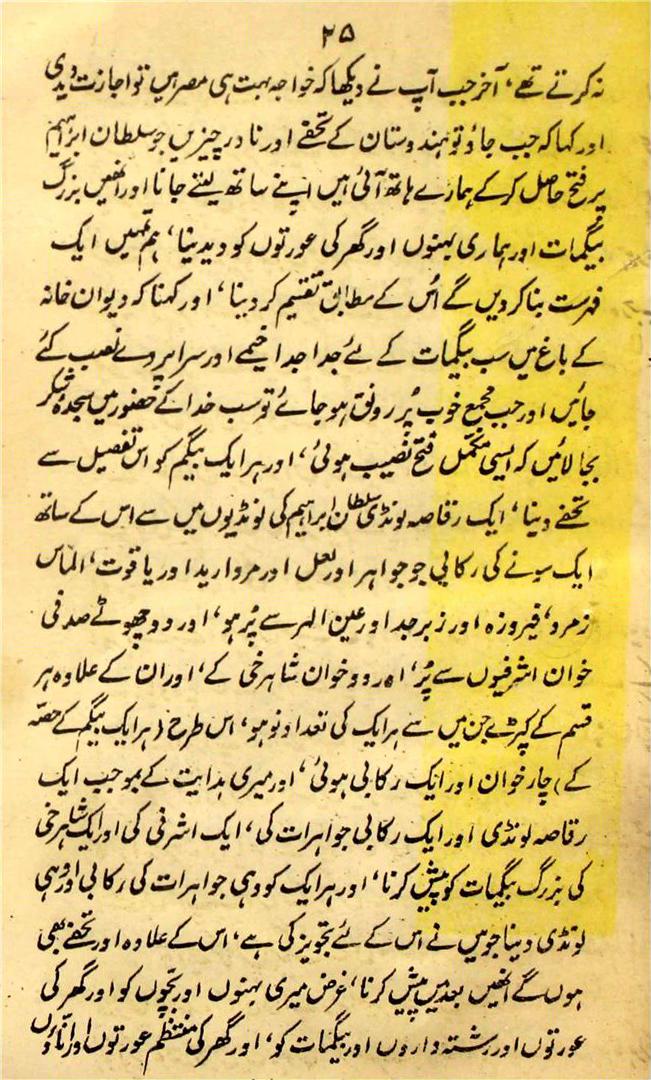 ۲۵
نہ کرتے تھے، آخر جب آپ نے دیکھا کہ خواجہ بہت ہی مصر ہیں تو اجازت دیدی
اور کہا کہ جب جاؤ تو ہندوستان کے تحفے اور نادر چیزیں جو سلطان ابراہیم
پر فتح حاصل کر کے ہمارے ہاتھ آئی ہیں اپنے ساتھ لیتے جانا اور انھیں بزرگ
بیگمات اور ہماری بہنوں اور گھر کی عورتوں کو دیدینا، ہم تمہیں ایک
فہرست بنا کر دیں گے اُس کے مطابق تقسیم کر دینا، اور کہنا کہ دیوان خانہ
کے باغ میں سب بیگمات کے لئے جدا جدا خیمے اور سراپردے نصب کئے
جائیں اور جب مجمع خوب پُر رونق ہو جائے تو سب خدا کے حضور میں سجدۂ شکر
بجا لائیں کہ ایسی مکمل فتح نصیب ہوئی، اور ہر ایک بیگم کو اس تفصیل سے
تحفے دینا، ایک رقاصہ لونڈی سلطان ابراہیم کی لونڈیوں میں سے اس کے ساتھ
ایک سونے کی رکابی جو جواہر اور لعل اور مروارید اور یاقوت، الماس
زمرد، فیروزہ اور زبرجد اور عین الہر سے پُر ہو، اور دو چھوٹے صدفی
خوان اشرفیوں سے پُر، اور دو خوان شاہرخی کے، اور ان کے علاوہ ہر
قسم کے کپڑے جن میں سے ہر ایک کی تعداد نو ہو، اس طرح (ہر ایک بیگم کے حصّہ
کے) چار خوان اور ایک رکابی ہوئی، اور میری ہدایت کے بموجب ایک
رقاصہ لونڈی اور ایک رکابی جواہرات کی، ایک اشرفی کی اور ایک شاہرخی
کی بزرگ بیگمات کو پیش کرنا، اور ہر ایک کو وہی جواہرات کی رکابی اور وہی
لونڈی دینا جو میں نے اس کے لئے تجویز کی ہے، اس کے علاوہ اور تحفے بھی
ہوں گے انھیں بعد میں پیش کرنا، غرض میری بہنوں اور بچّوں کو اور گھر کی
عورتوں اور رشتہ داروں اور بیگمات کو، اور گھر کی منتظم عورتوں اور انّاؤں